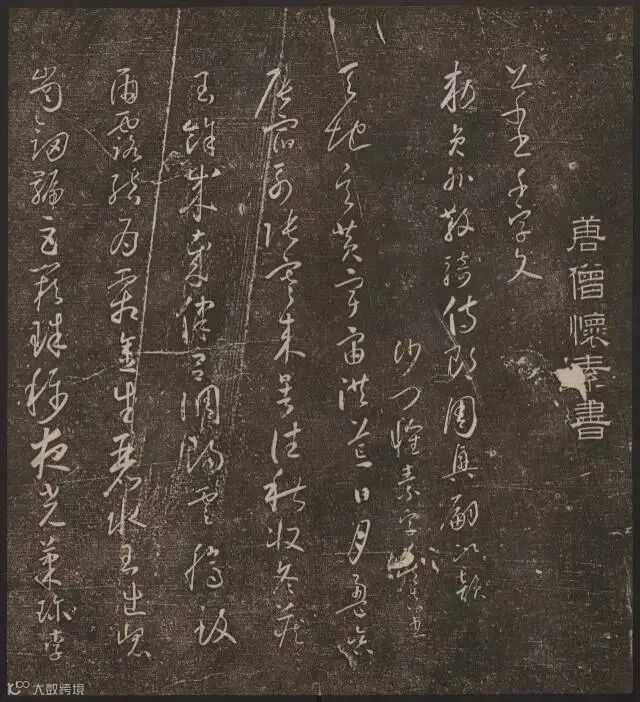 唐僧懷素書
千字文
敕員外散騎侍郎周興嗣次韻
沙門懷素字藏真書
天地玄黃宇宙洪荒日月盈昃
辰宿列張寒來暑往秋收冬藏
閏餘成歲律呂調陽雲騰致
雨露結為霜金生麗水玉出崑
崗劍號巨闕珠稱夜光菓珍李
大数跨境